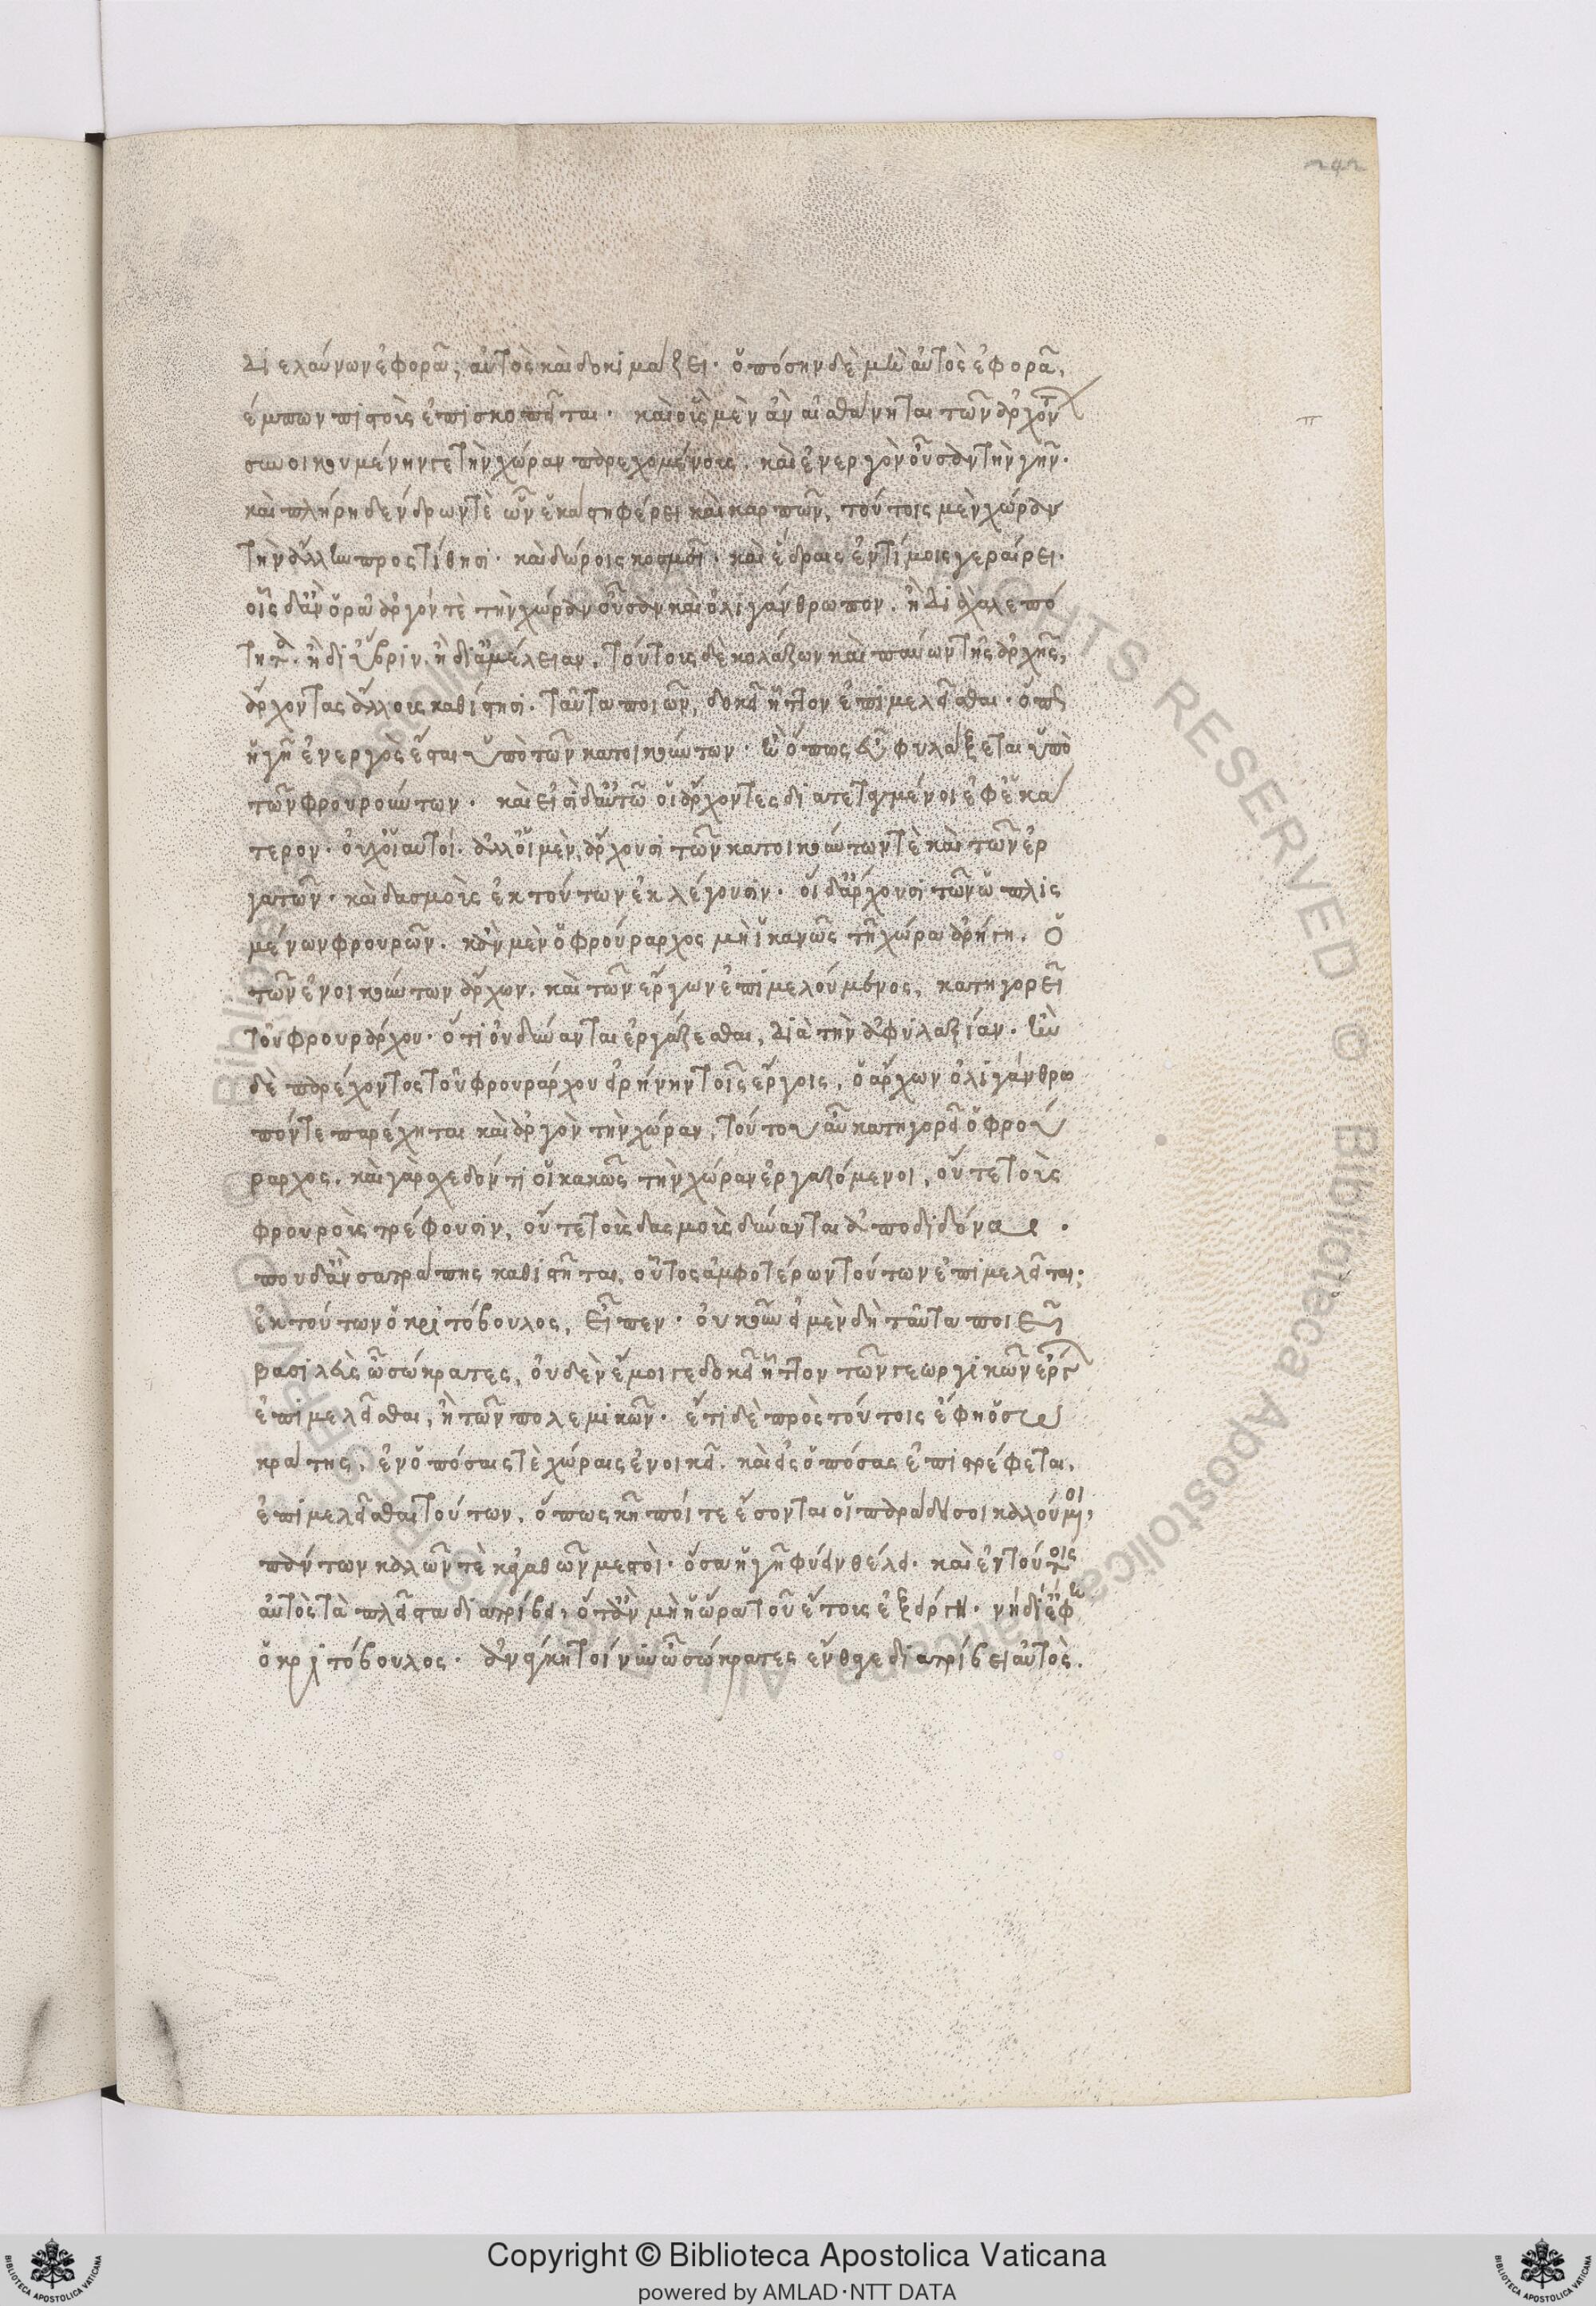 242
διελαύνων ἐφορᾶ, αὐτὸς καὶ δοκιμάζει· ὁπόσην δὲ μὴ αὐτὸς ἐφορᾶ,
πέμπων πιστοὺς ἐπισκοπεῖται· καὶ οὓς μὲν ἂν αἰσθάνηται τῶν ἀρχόντ
συνοικουμένην τε τὴν χώραν παρεχομένους, καὶ ἐνεργὸν οὖσαν τὴν γῆν·
καὶ πλήρη δένδρων τὲ ὧν ἑκάστη φέρει καὶ καρπῶν, τούτοις μὲν χώραν
τὴν ἄλλην προστίθησι· καὶ δώροις κοσμεῖ· καὶ ἕδραις ἐντίμοις γεραίρει·
οἷς δ' ἂν ὁρᾶ ἀργόν τὲ τὴν χώραν οὖσαν καὶ ὀλιγάνθρωπον, ἢ διὰ χαλεπό
τητα, ἢ δι' ὕβριν, ἢ δι' ἀμέλειαν, τούτους δὲ κολάζων καὶ παύων τῆς ἀρχῆς,
ἄρχοντας ἄλλους καθίστησι· ταῦτα ποιῶν, δοκεῖ ἧττον ἐπιμελεῖσθαι· ὅπως
ἡ γῆ ἐνεργὸς ἔσται ὑπὸ τῶν κατοικούντων· ἢ ὅπως εὖ φυλάξεται ὑπὸ
τῶν φρουρούντων· καὶ εἰσὶ δ' αὐτῶ οἱ ἄρχοντες διατεταγμένοι ἐφ' ἑκά
τερον· οὐχ οἱ αὐτοί· ἀλλ' οἱ μὲν, ἄρχουσι τῶν κατοικούντων τὲ καὶ τῶν ἐρ
γατῶν· καὶ δασμοὺς ἐκ τούτων ἐκλέγουσιν· οἱ δ' ἄρχουσι τῶν ὡπλισ
μένων φρουρῶν· κἂν μὲν ὁ φρούραρχος μὴ ἱκανῶς τῆ χώρα ἀρήγη, ὁ
τῶν ἐνοικούντων ἄρχων, καὶ τῶν ἔργων ἐπιμελούμενος, κατηγορεῖ
τοῦ φρουράρχου· ὅτι οὐ δύνανται ἐργάζεσθαι, διὰ τὴν ἀφυλαξίαν· ἢν
δὲ παρέχοντος τοῦ φρουράρχου εἰρήνην τοῖς ἔργοις, ὁ ἄρχων ὀλιγάνθρω
πόν τε παρέχηται καὶ ἀργὸν τὴν χώραν, τούτου αὖ κατηγορεῖ ὁ φρού
ραρχος· καὶ γὰρ σχεδόν τι οἱ κακῶς τὴν χώραν ἐργαζόμενοι, οὔτε τοὺς
φρουροὺς τρέφουσιν, οὔτε τοὺς δασμοὺς δύνανται ἀποδιδόναι·
που δ' ἂν σατράπης καθιστῆται, οὗτος ἀμφοτέρων τούτων ἐπιμελεῖται·
ἐκ τούτων ὁ κριτόβουλος, εἶπεν· οὐκοῦν εἰ μὲν δὴ ταῦτα ποιεῖ
βασιλεὺς ὦ σώκρατες, οὐδὲν ἔμοιγε δοκεῖ ἧττον τῶν γεωργικῶν ἔργ
ἐπιμελεῖσθαι, ἢ τῶν πολεμικῶν· ἔτι δὲ πρὸς τούτοις ἔφη ὁ σω
κράτης, ἐν ὁπόσαις τὲ χώραις ἐνοικεῖ, καὶ εἰς ὁπόσας ἐπιστρέφεται,
ἐπιμελεῖσθαι τούτων, ὅπως κῆποί τε ἔσονται οἱ παράδεισοι καλούμοι,
πάντων καλῶν τὲ κἀγαθῶν μεστοὶ· ὅσα ἡ γῆ φύειν θέλει· καὶ ἐν τούτοις
αὐτὸς τὰ πλεῖστα διατρίβει, ὅταν μὴ ἡ ὥρα τοῦ ἔτους ἐξείργη· νὴ δί' ἔφη
ὁ κριτόβουλος· ἀνάγκη τοίνυν ὦ σώκρατες ἔνθα γε διατρίβει αὐτὸς·
Copyright © Biblioteca Apostolica Vaticana
powered by AMLAD·NTT DATA